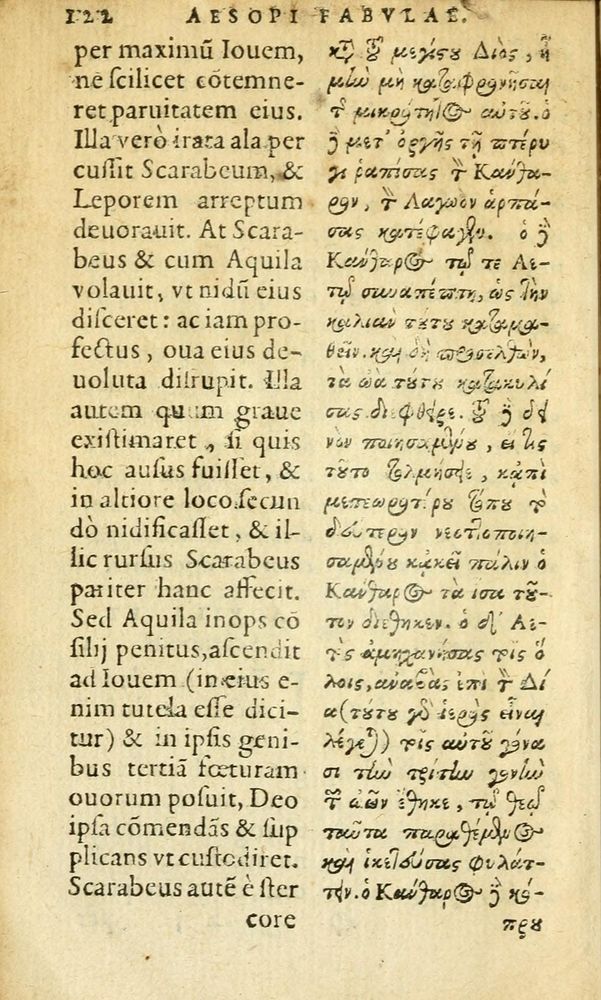 122 AESOPI FABVLAE.
per maximũ Iouem,
ne ſcilicet cõtemne-
ret paruitatem eius.
Illa verò irata ala per
cuſſit Scarabeum, &
Leporem arreptum
deuorauit. At Scara-
beus & cum Aquila
volauit, vt nidũ eius
diſceret: ac iam pro-
fectus, oua eius de-
uoluta diſrupit. Illa
autem quum graue
exiſtimaret, ſi quis
hoc auſus fuiſſet, &
in altiore loco ſecun
dò nidificaſſet, & il-
lic rurſus Scarabeus
pariter hanc affecit.
Sed Aquila inops cõ
ſilij penitus, aſcendit
ad Iouem (in eius e-
nim tutela eſſe dici-
tur) & in ipſis geni-
bus tertiã fœturam
ouorum poſuit, Deo
ipſa cõmendãs & ſup
plicans vt cuſtodiret.
Scarabeus autẽ è ſter
core
καὶ τοῦ μεγίστου Διὸς, ἦ
μὴν μὴ καταφρονῆσαι
τ μικρότητος αὐτοῦ. ὁ
δὲ μετ' ὀργῆς τῇ πτέρυ
γι ῥαπίσας τὸν Κάνθα-
ρον, τὸν Λαγωὸν ἁρπά-
σας κατέφαγεν. ὁ δὲ
Κάνθαρος τῷ τε Αε-
τῷ συναπέπτη, ὡς τὴν
καλιὰν τούτου καταμα-
θεῖν. καὶ δὴ προσελθὼν,
τὰ ὠὰ τούτου κατακυλί
σας διέφθειρε. τοῦ δὲ δει
νὸν ποιησαμένου, εἴ τις
τοῦτο τολμήσειε, κἀπὶ
μετεωροτέρου τόπου τὸ
δεύτερον νεοττοποιη-
σαμένου κἀκεῖ πάλιν ὁ
Κάνθαρος τὰ ἴσα τοῦ-
τον διέθηκεν. ὁ δ' Αε-
τὸς ἀμηχανήσας τοῖς ὅ
λοις, ἀναβὰς ἐπὶ τὸν Δί
α (τούτου γὰρ ἱερὸς εἶναι
λέγεται) τοῖς αὐτοῦ γόνα
σι τὴν τρίτην γονὴν
τῶν ὠῶν ἔθηκε, τῷ θεῷ
ταῦτα παραθέμενος
καὶ ἱκετεύσας φυλάτ-
τειν. ὁ Κάνθαρος δὲ κό-
πρου